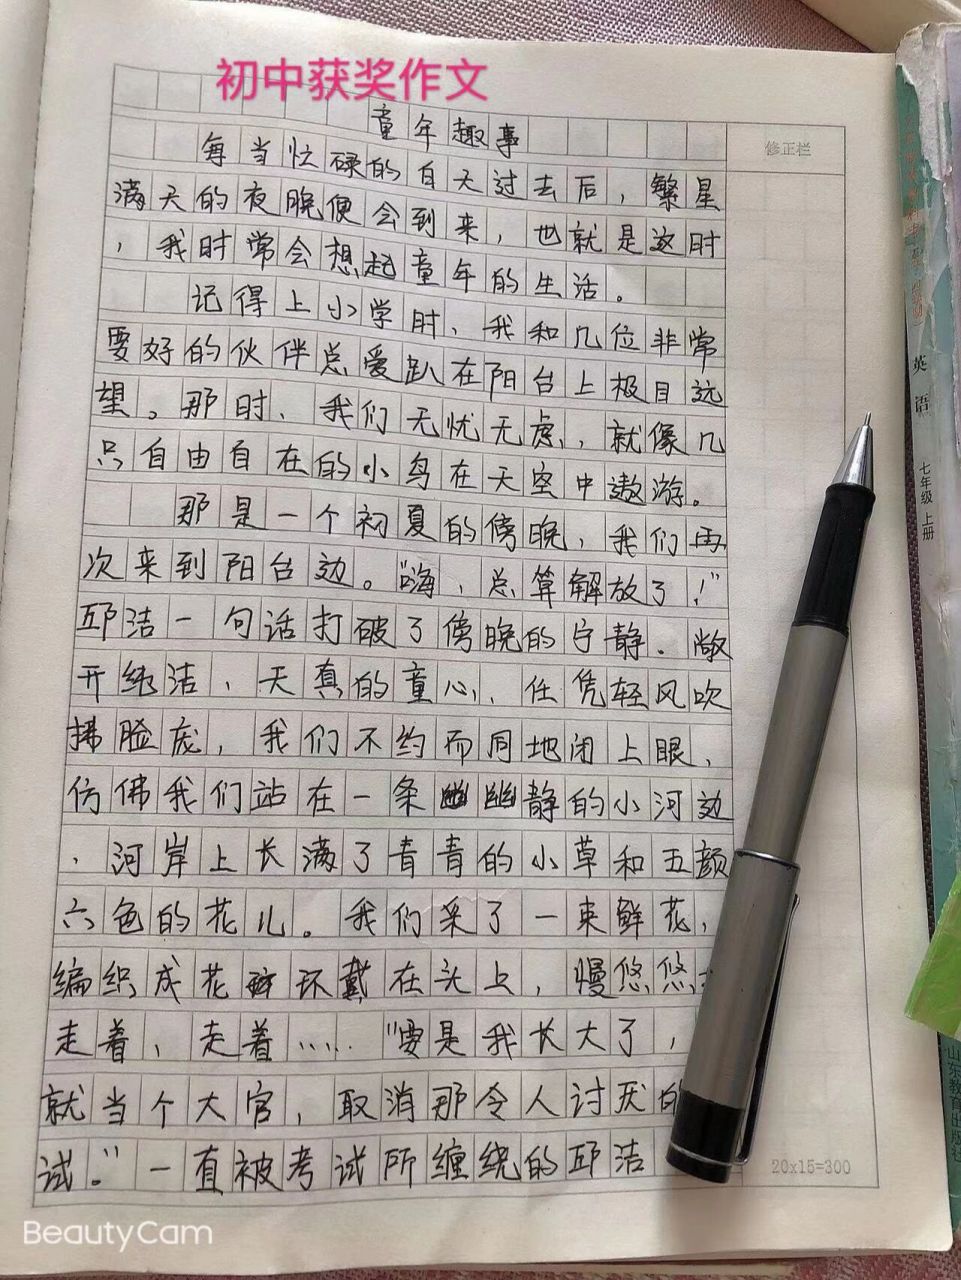 初中获奖作文
童年趣事
修正栏
每当忙碌的白天过去后，繁星
满天的夜晚便会到来，也就是这时
，我时常会想起童年的生活。
记得上小学时、我和几位非常
要好的伙伴总爱趴在阳台上极目远
望。那时、我们无忧无虑，就像几
只自由自在的小鸟在天空中遨游。
那是一个初夏的傍晚，我们再
次来到阳台边。“嗨，总算解放了！”
邱洁一句话打破了傍晚的宁静．敞
开纯洁、天真的童心、任凭轻风吹
拂脸庞，我们不约而同地闭上眼、
仿佛我们站在一条幽静的小河边
，河岸上长满了青青的小草和五颜
六色的花儿。我们采了一束鲜花，
编织成花环戴在头上，慢悠悠
走着、走着……“要是我长大了，
就当个大官，取消那令人讨厌的
试。”一直被考试所缠绕的邱洁
20x15=300
英语
七年级 上册
山东教育出版社
BeautyCam